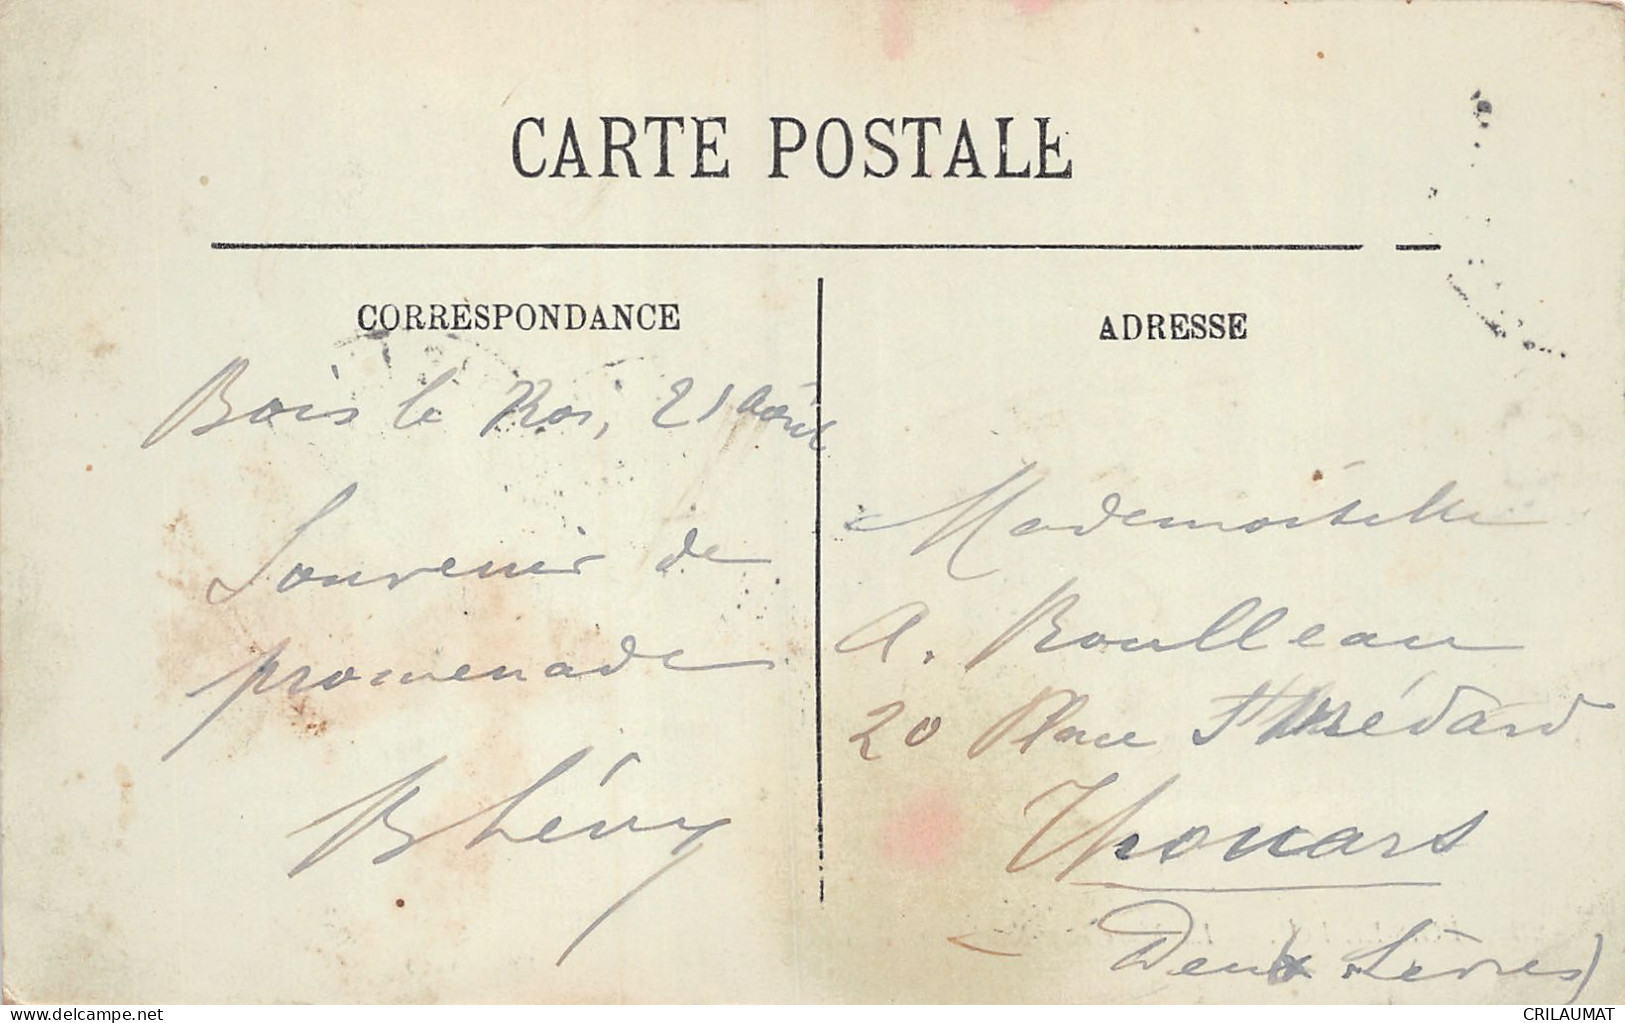 CARTE POSTALE
CORRESPONDANCE
Bois le Roi, 21 Août
Souvenir de
promenade
B Lévy
ADRESSE
Mademoiselle
A. Roulleau
20 Place St Médard
Thouars
Deux Sèvres)
delcampe.net
CRILAUMAT